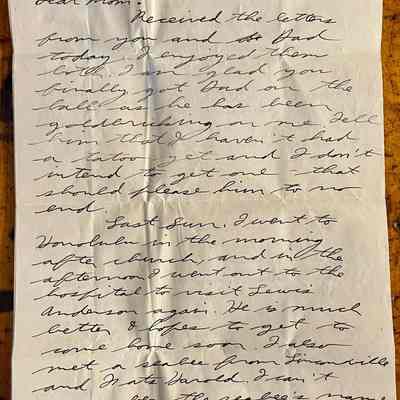 Dear Mom:
Received the letters
from you and Dad
today. I enjoyed them
both. I am glad you
finally got Dad on the
ball as he has been
goldbricking on me. Tell
him that I haven't had
a tatoo yet and I don't
intend to get one - that
should please him to no
end.
Last Sun. I went to
Honolulu in the morning
after church, and in the
afternoon I went out to the
hospital to visit Lewis
Anderson again. He is much
better & hopes to get to
come home soon. I also
met a seabee from Lincolnville
and Nate Harold. I can't
the seabee's name